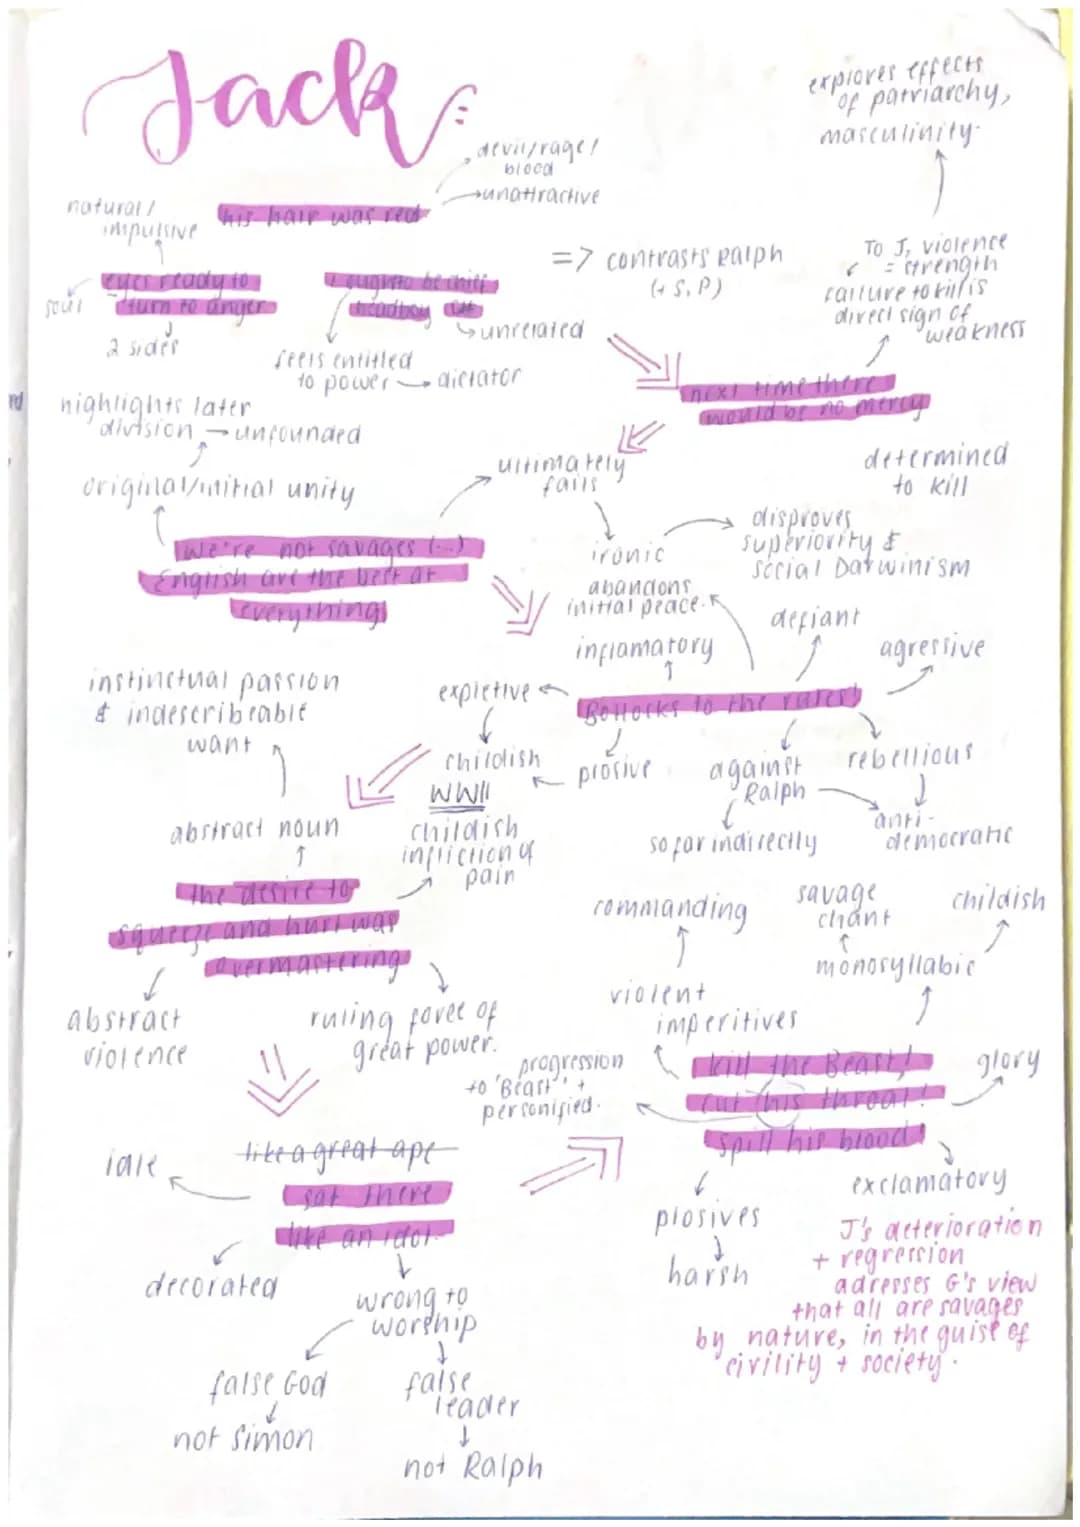 Jack:
explores effects
of patriarchy,
masculinity.
devil/rage/
blood
unattractive
natural/
impulsive
his hair was red
=> contrasts Ralph
(+ S, P)
To J, violence
= strength
failure to kill is
direct sign of
weakness
eyes ready to
turn to anger
soul
2 sides
I ought to be chief
headboy C#
unrelated
feels entitled
to power → dictator
next time there
would be no mercy
determined
to kill
highlights later
division → unfounded
original/initial unity
ultimately
fails
ironic
disproves
superiority &
Social Darwinism
We're not savages (...)
English are the best at
everything
abandons
initial peace.
inflamatory
defiant
agressive
expletive
Bollocks to the rules!
instinctual passion
& indescribeable
want
childish
plosive
against
Ralph
rebellious
so far indirectly
anti-
democratic
WWII
childish
infliction of
pain
abstract noun
the desire to
squeeze and hurt was
overmastering
abstract
violence
ruling force of
great power.
commanding
savage
chant
childish
monosyllabic
violent
imperitives
kill the Beast!
cut his throat!
spill his blood!
glory
progression
to 'Beast' +
personified.
exclamatory
plosives
harsh
like a great ape
sat there
like an idol.
idle
decorated
wrong to
worship
false God
not Simon
false
leader
not Ralph
J's deterioration
+ regression
adresses G's view
that all are savages
by nature, in the guise of
civility + society.